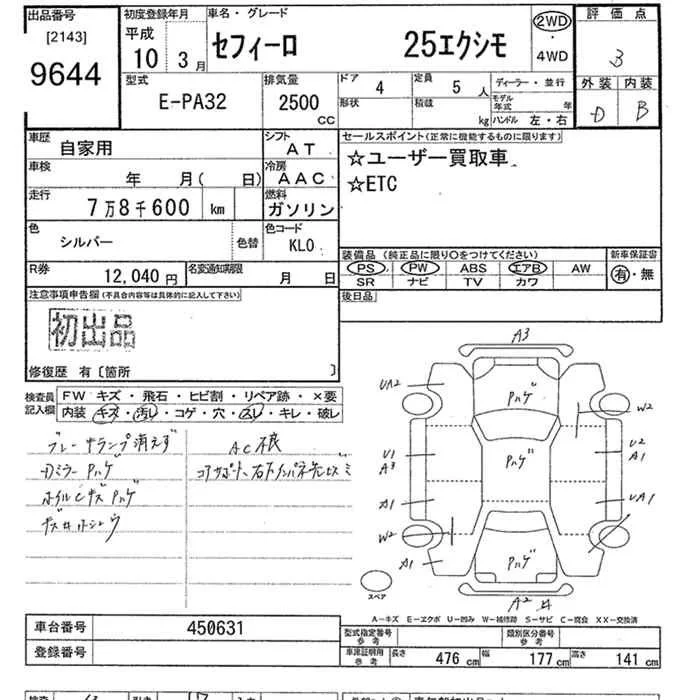 出品番号
[2143]
9644
初度登録年月
平成
10 3月
車名・グレード
セフィーロ 25エクシモ
2WD
・
4WD
評価点
3
外装 内装
D B
型式
E-PA32
排気量
2500
CC
ドア 4
定員 5人
形状
積載 kg
ディーラー・並行
モデル年式 年
ハンドル 左・右
車歴
自家用
シフト
AT
車検
年 月( 日)
冷房
AAC
走行
7万8千600 km
燃料
ガソリン
色
シルバー
色替
色コード
KL0
R券
12,040円
名変通知期限
月 日
セールスポイント(正常に機能するものに限ります)
☆ユーザー買取車
☆ETC
装備品(純正品に限り○をつけてください)
新車保証書
PS PW ABS エアB AW
SR ナビ TV カワ
有・無
後日品
注意事項申告欄(不具合内容等は具体的に記入して下さい)
初出品
修復歴 有〔箇所 〕
検査員
記入欄
FW キズ・飛石・ヒビ割・リペア跡・×要
内装・キズ・汚レ・コゲ・穴・スレ・キレ・破レ
ブレーキランプ消えず
AC不良
Dミラー Pハゲ
ホイルCキズ Pハゲ
A3
UA2
Pハゲ
W2
U1
A3
Pハゲ
U2
A1
A1
UA1
W2
Pハゲ
A1
A2
スペア
A-キズ E-エクボ U-凹み W-補修跡 S-サビ C-腐食 XX-交換済
車台番号
450631
登録番号
型式指定番号
参考
類別区分番号
参考
車庫証明用
参考
長さ 476cm
幅 177cm
高さ 141cm